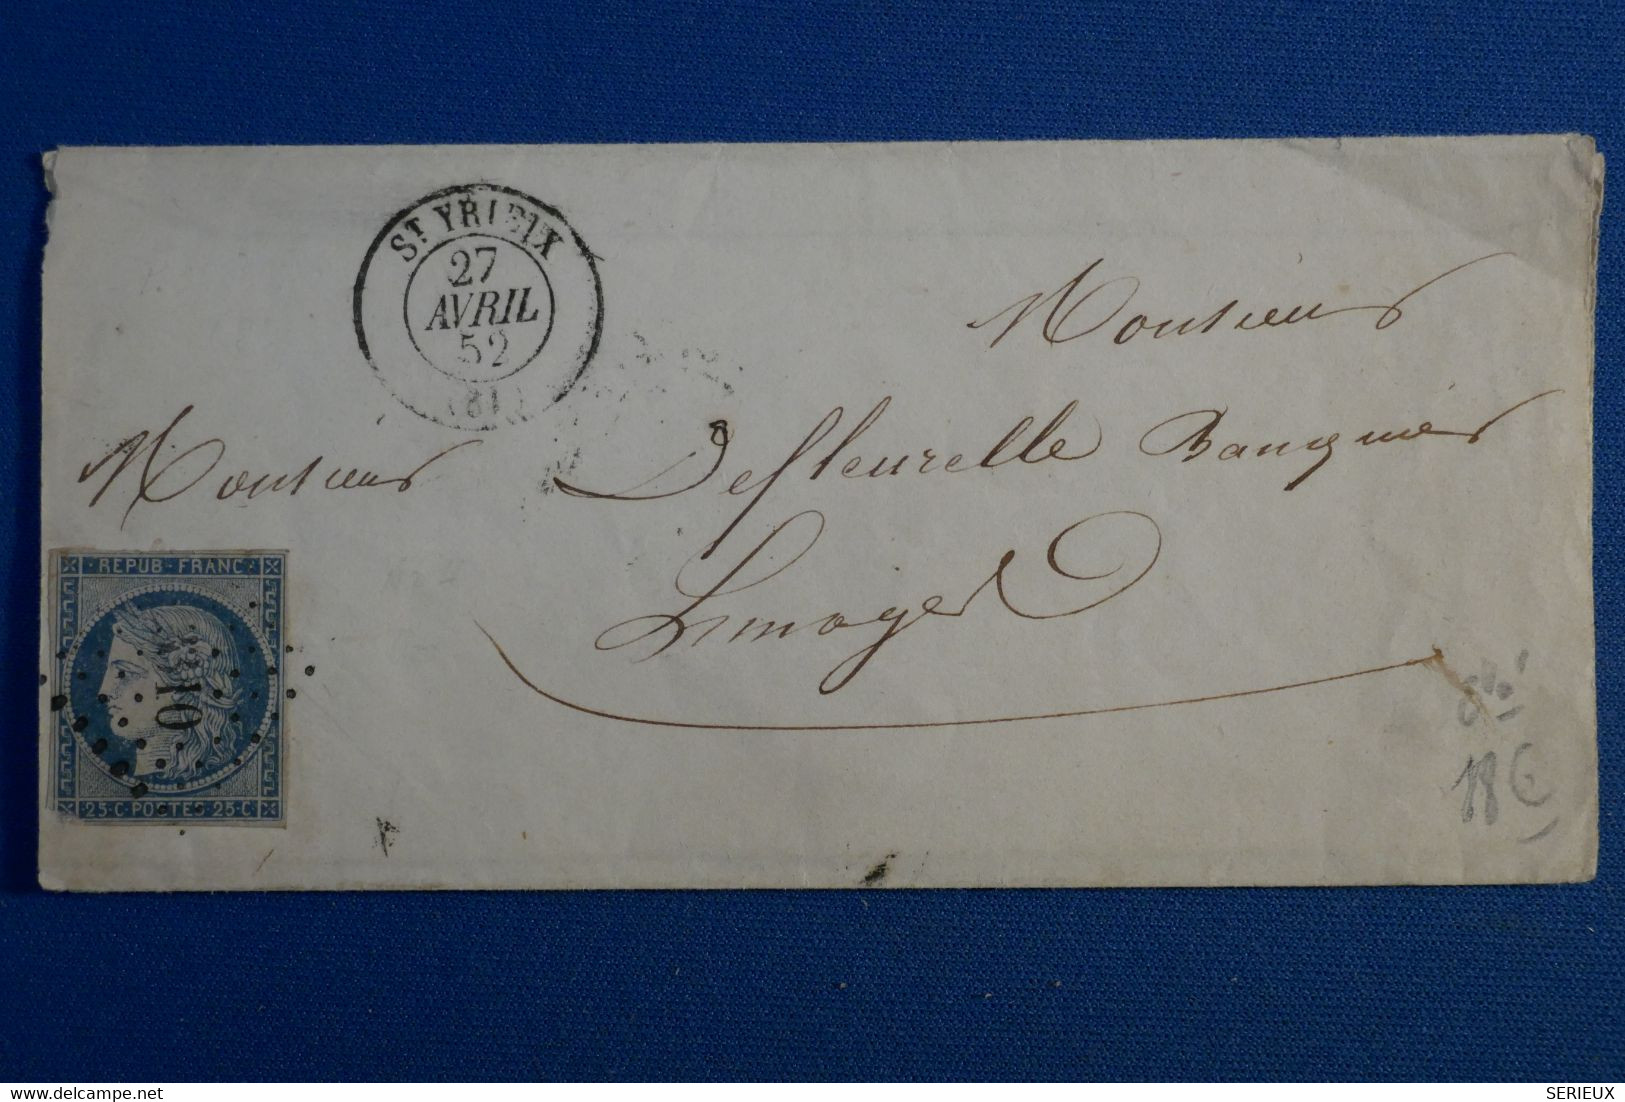 ST YRIEIX
27
AVRIL
52
(81)
Monsieur
Monsieur Defleurelle Banquier
Limoges
REPUB·FRANC·
3310
25·C·POSTES·25·C
18€
www.delcampe.net
SERIEUX